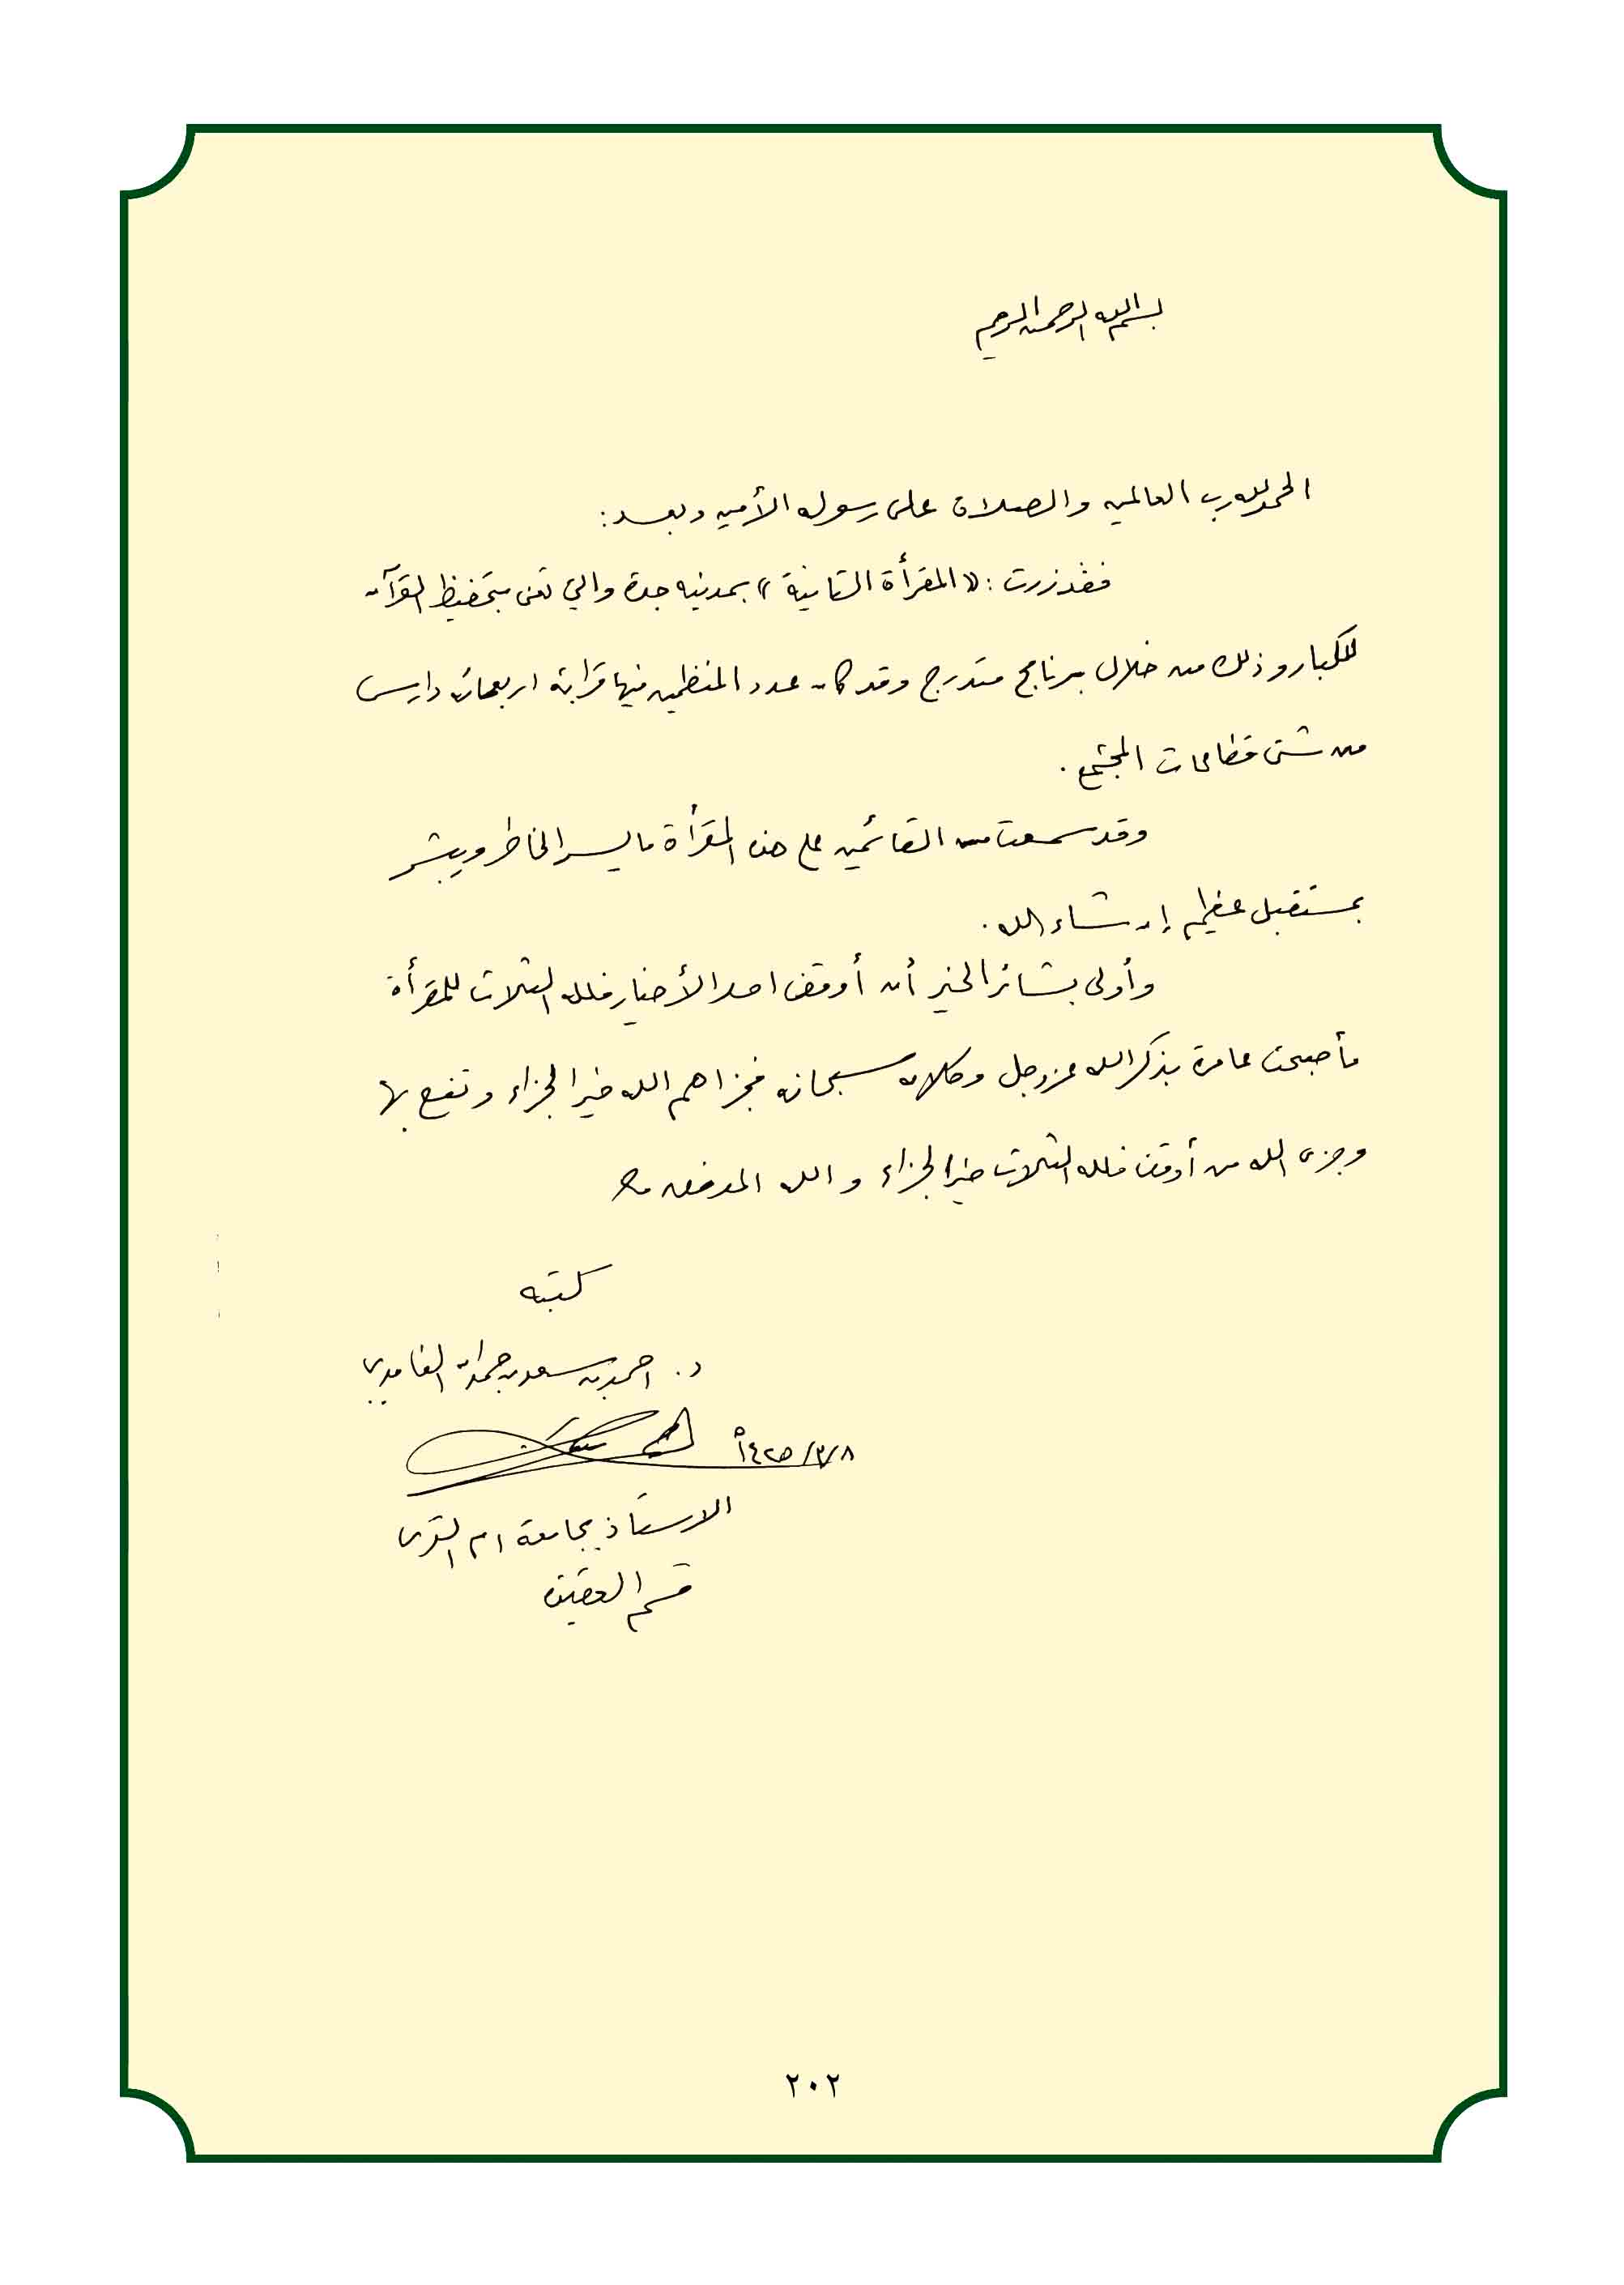 بسم الله الرحمن الرحيم
الحمد لله رب العالمين والصلاة على رسوله الأمين وبعد:
فقد زرت: «المقرأة الثانية» بمدينة جدة والتي تعنى بتحفيظ القرآن
للكبار وذلك من خلال برنامج متدرج وقد كان عدد المنظمين فيها قرابة اربعمائة دارس
من شتى قطاعات المجتمع.
وقد سمعت من القائمين على هذه المقرأة ما يسر الخاطر ويبشر
بمستقبل عظيم إن شاء الله.
وأولى بشائر الخير أن أوقف احد الأخيار فلله الثلاث للمقرأة
فأصبحت عامرة بذكر الله عز وجل وكلامه سبحانه فجزاهم الله خير الجزاء ونفع بها
وجزى الله من أوقف فلله الثلاث خير الجزاء والله الموفق
كتبه
د. احمد بن سعد بن حمدان الغامدي
١٤٢٥/٣/٨هـ
الاستاذ بجامعة ام القرى
قسم العقيدة
٢٠٢